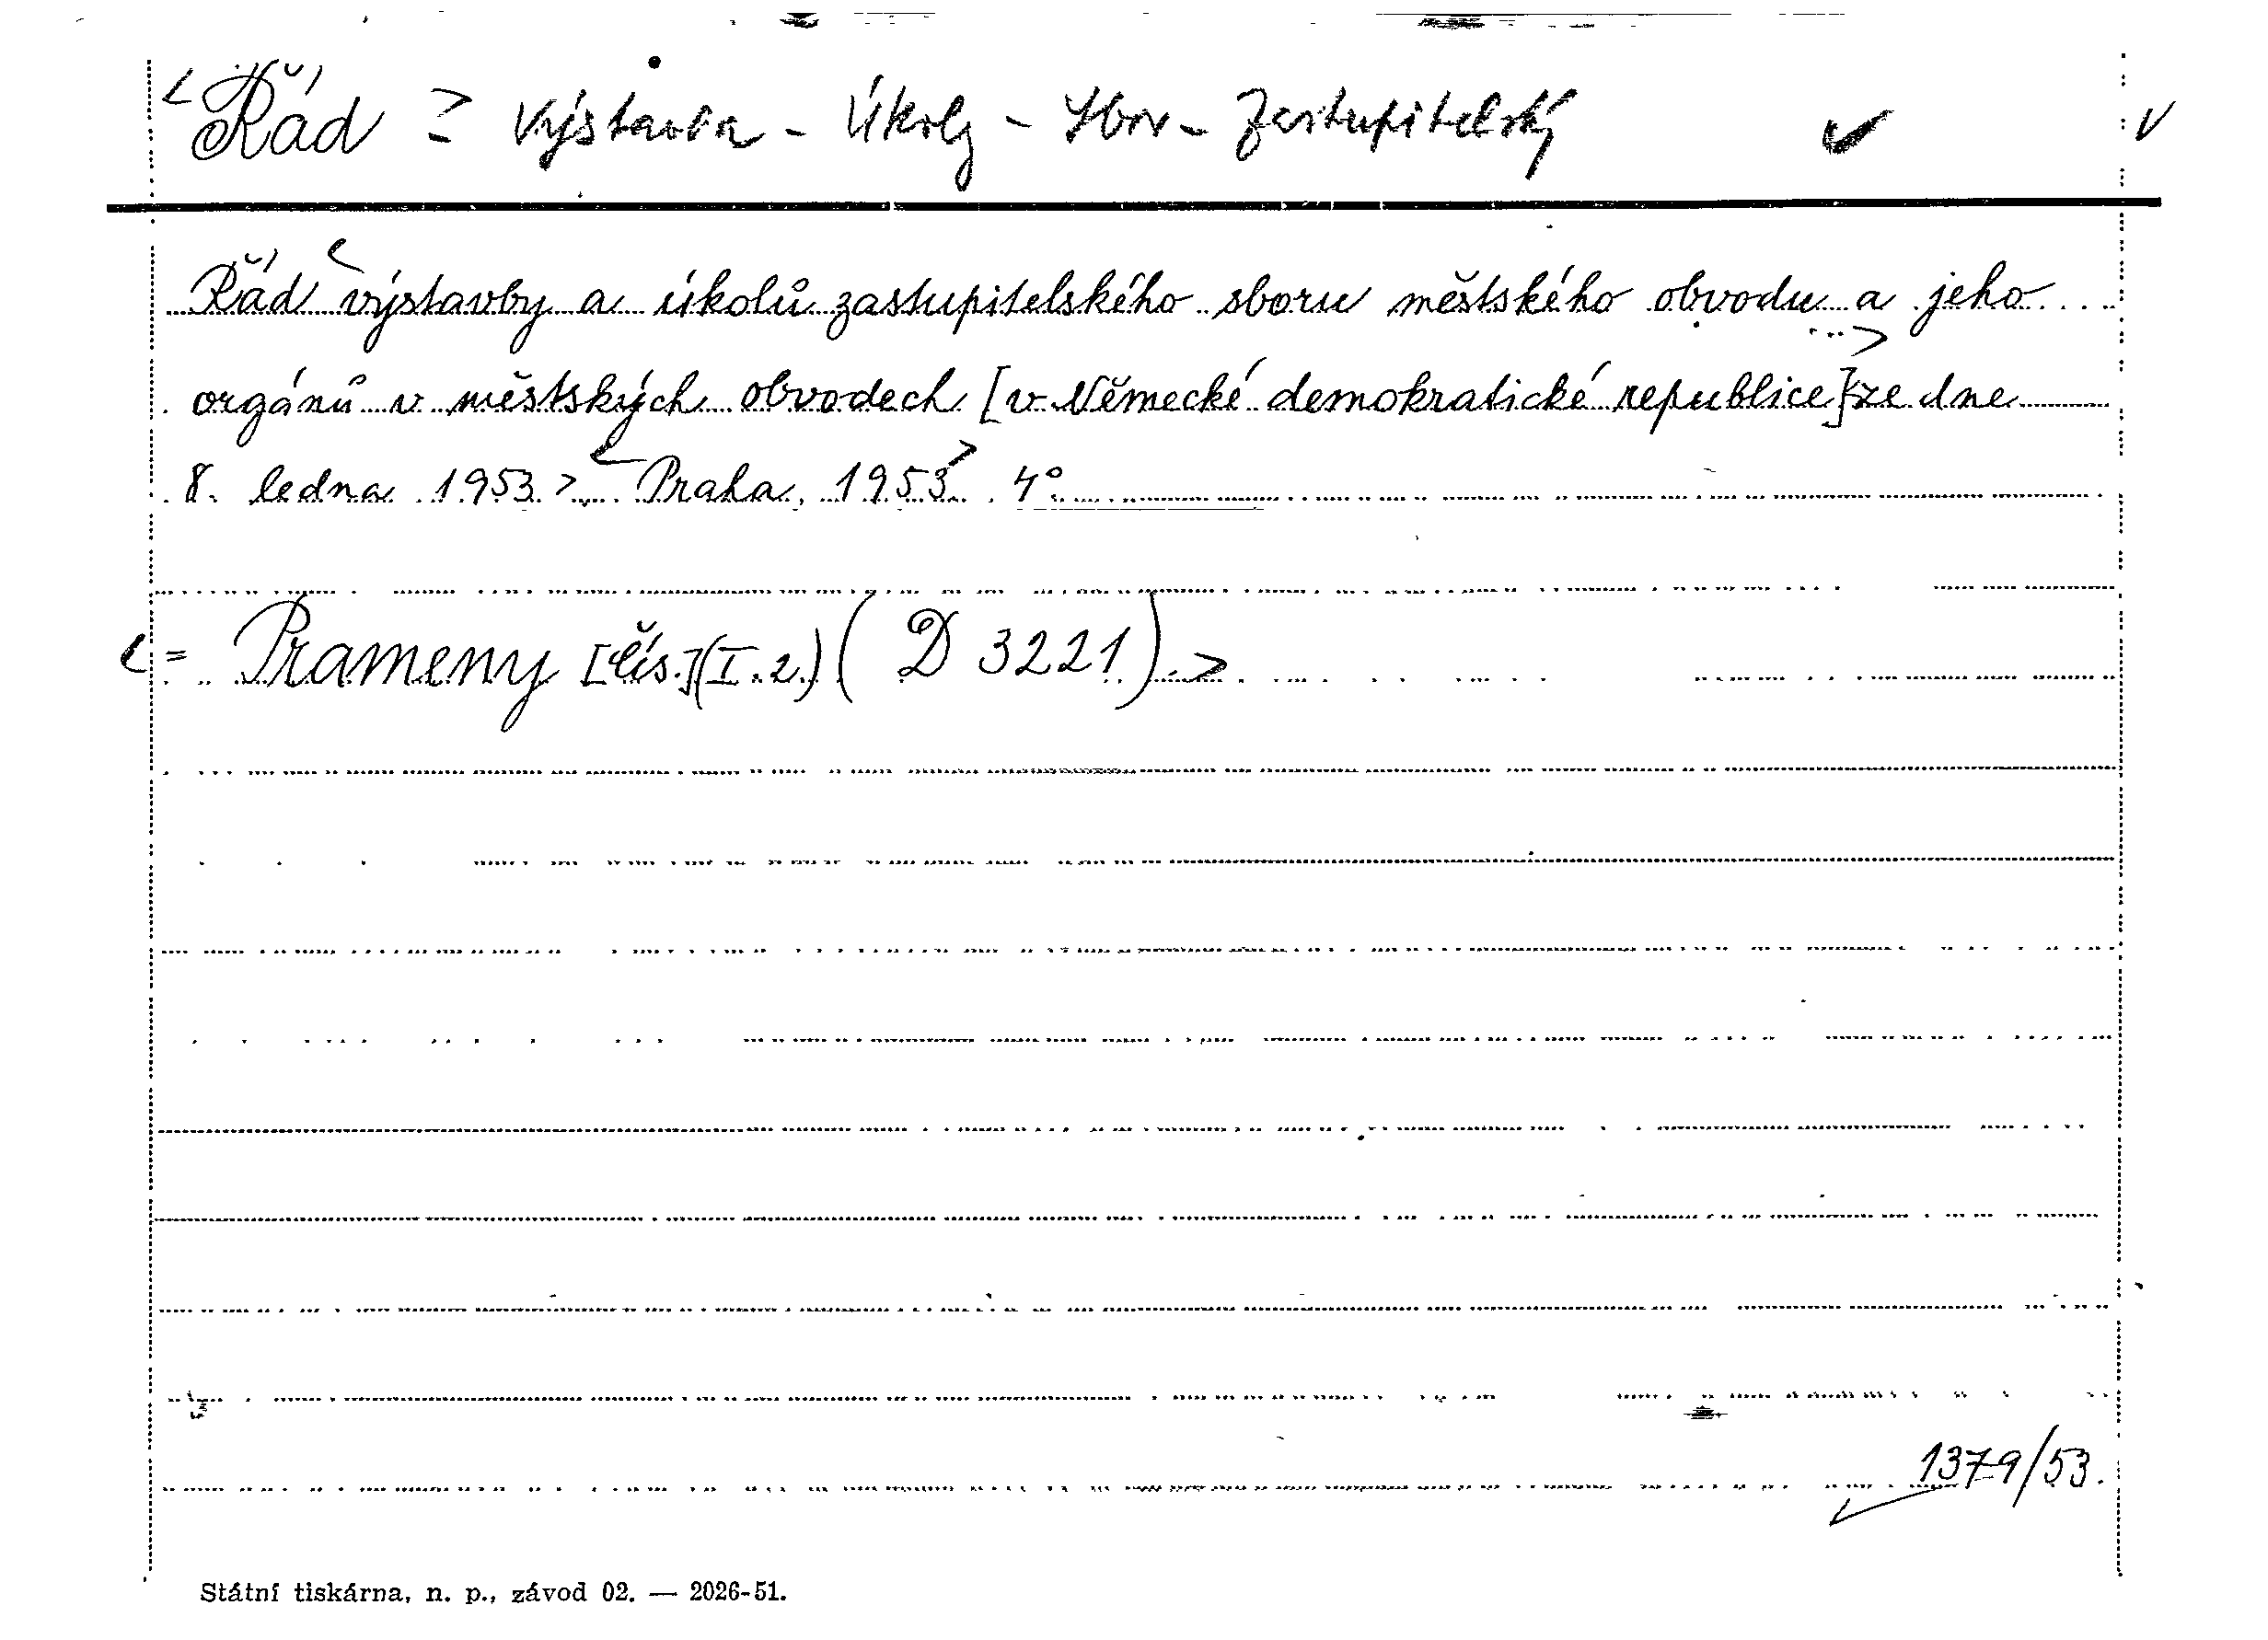 Řád = výstavba - úkoly - sbor - zastupitelský
Řád výstavby a úkolů zastupitelského sboru městského obvodu a jeho
orgánů v městských obvodech [v Německé demokratické republice] ze dne
8. ledna 1953. Praha, 1953. 4°.
= Prameny [čís.] (I. 2.) (D 3221).
1379/53.
Státní tiskárna, n. p., závod 02. — 2026-51.